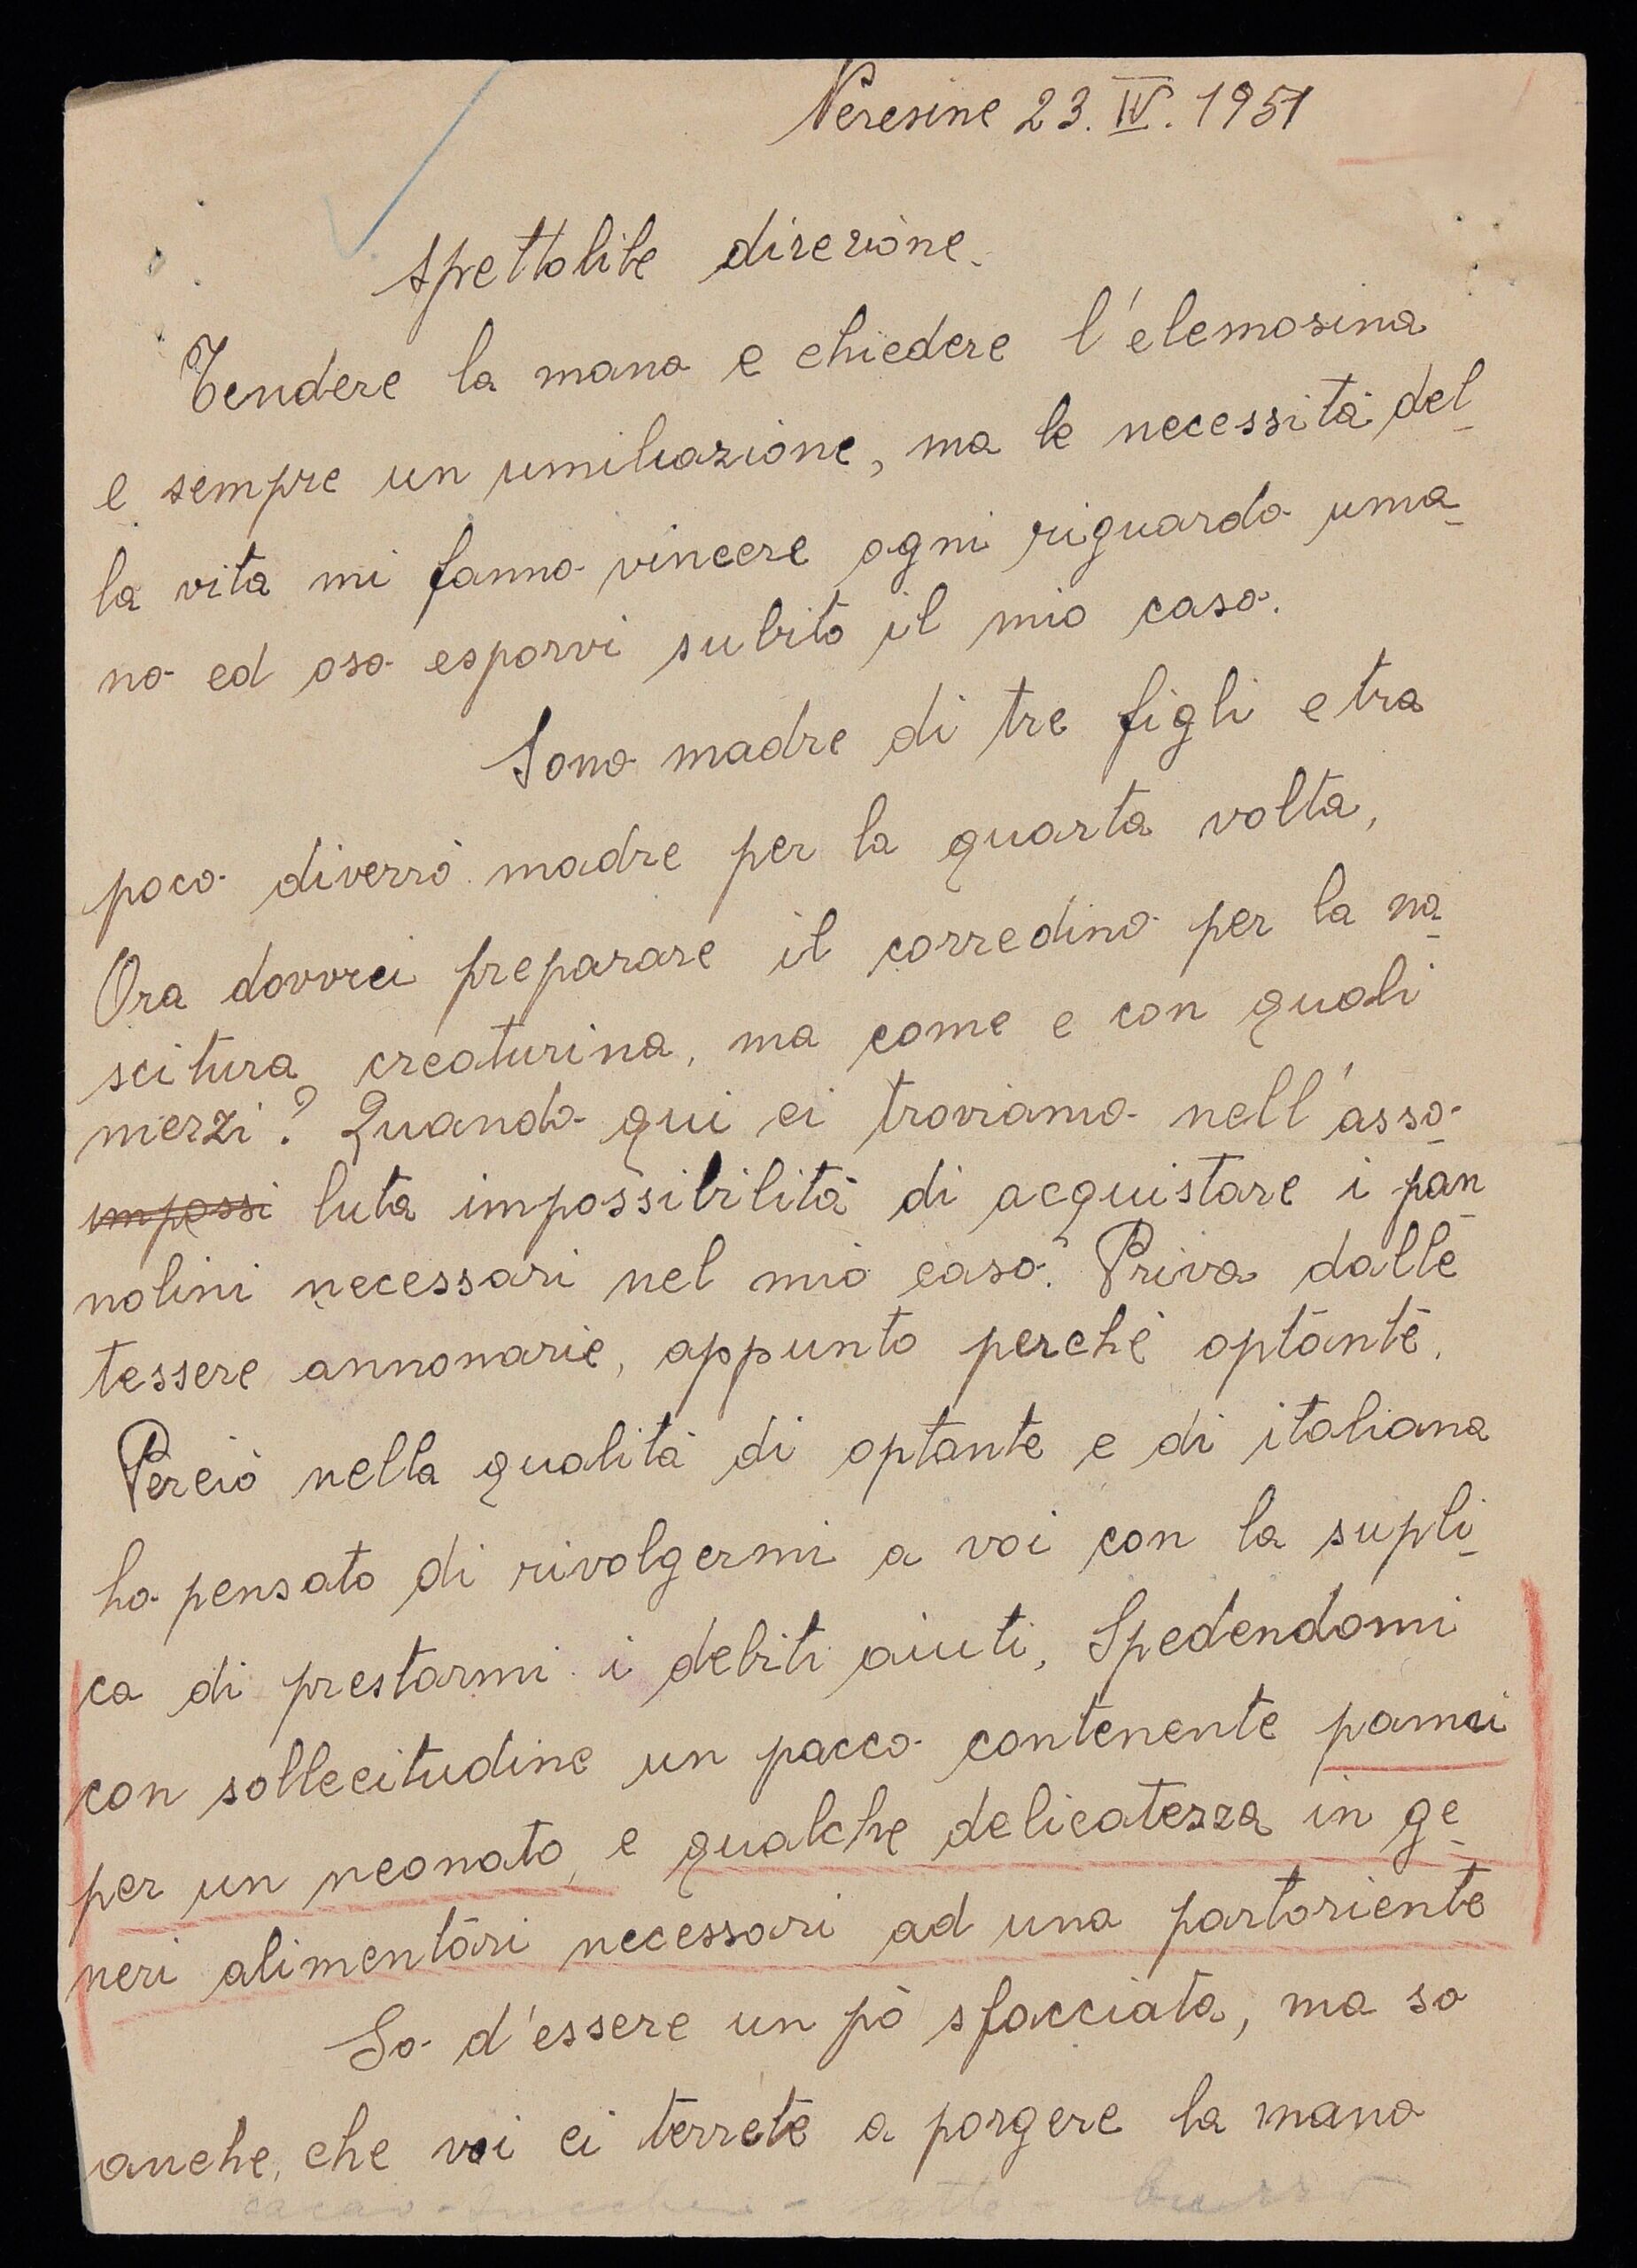 Neresine 23. IV. 1951
spettabile direzione.
Tendere la mano e chiedere l'elemosina
e sempre un umiliazione, ma le necessità del
la vita mi fanno vincere ogni riguardo uma
no ed oso esporvi subito il mio caso.
Sono madre di tre figli e tra
poco diverrò madre per la quarta volta,
Ora dovvrei preparare il corredino per la na
scitura creaturina, ma come e con quali
merzi? Quando qui ci troviamo nell'asso
impossi luta impossibilità di acquistare i pan
nolini necessari nel mio caso? Priva dalle
tessere annonarie, appunto perchè optante.
Perciò nella qualità di optante e di italiana
ho pensato di rivolgermi a voi con la supli
ca di prestarmi i debiti aiuti, Spedendomi
con sollecitudine un pacco contenente panni
per un neonato, e qualche delicatezza in ge
neri alimentari necessari ad una partoriente
So d'essere un pò sfacciata, ma so
anche, che voi ci terrete a porgere la mano
cacao - zucchero - latte - burro